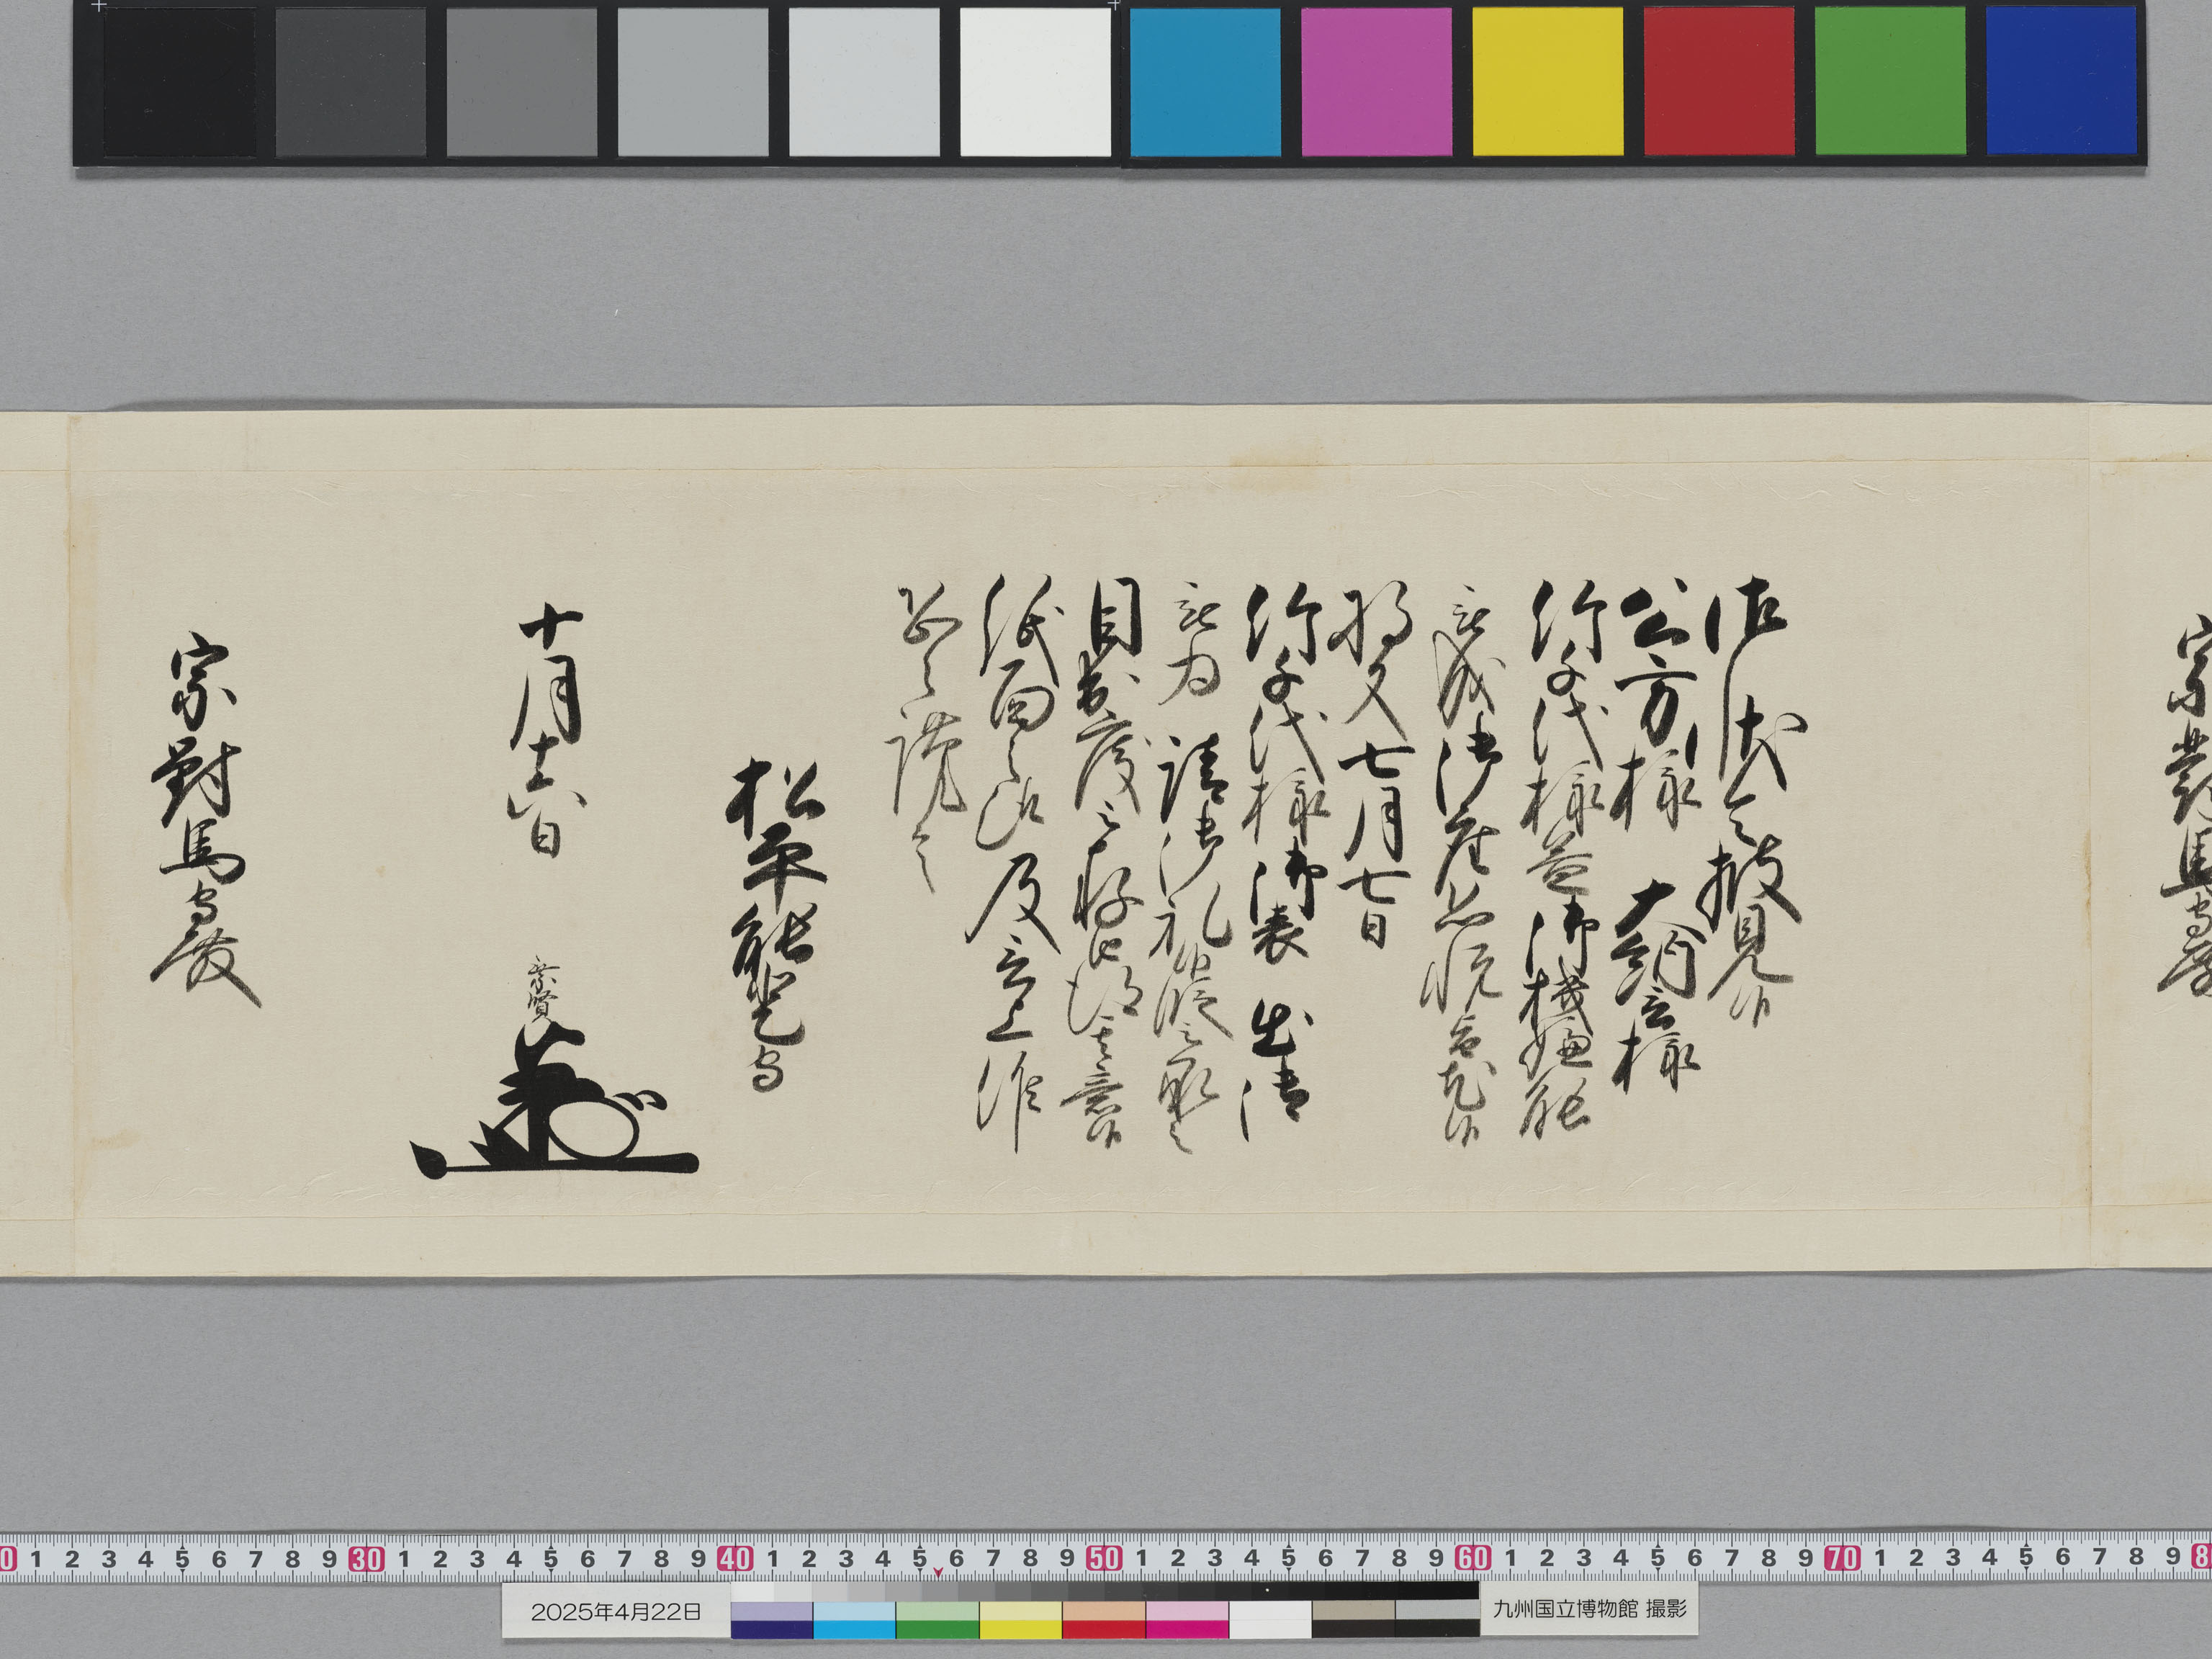 宗對馬守殿
御状令披見候
公方様 大納言様
竹千代様益御機嫌能
被成御座恐悦旨尤候
将又七月七日
竹千代様御表 出御
被為 請御礼候段被承之
目出度被存候由得其意候
紙面之趣及言上候
恐々謹言
松平能登守
十月十六日
乗賢
宗對馬守殿
0 1 2 3 4 5 6 7 8 9 30 1 2 3 4 5 6 7 8 9 40 1 2 3 4 5 6 7 8 9 50 1 2 3 4 5 6 7 8 9 60 1 2 3 4 5 6 7 8 9 70 1 2 3 4 5 6 7 8 9 8
2025年4月22日
九州国立博物館 撮影